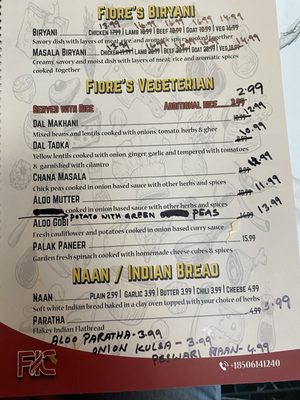 FIORE'S BIRYANI
14.99 16.99 14.99
BIRYANI CHICKEN 17.99 | LAMB 18.99 | BEEF 18.99 | GOAT 18.99 | VEG 16.99
Savory dish with layers of meat, rice and aromatic spices cooked together
MASALA BIRYANI CHICKEN | LAMB | BEEF | GOAT | VEG
Creamy savory and moist dish with layers of meat, rice and aromatic spices
cooked together
FIORE'S VEGETERIAN
2.99
SERVED WITH RICE ADDITIONAL RICE.... 3.99
DAL MAKHANI
Mixed beans and lentils cooked with onions, tomato, herbs & ghee
DAL TADKA
Yellow lentils cooked with onion, ginger, garlic and tempered with tomatoes
& garnished with cilantro
CHANA MASALA
Chick peas cooked in onion based sauce with other herbs and spices
ALOO MUTTER 11.99
cooked in onion based sauce with other herbs and spices
POTATO WITH GREEN PEAS
ALOO GOBI 13.99
Fresh cauliflower and potatoes cooked in onion based curry sauce
PALAK PANEER 15.99
Garden fresh spinach cooked with homemade cheese cubes & spices
NAAN / INDIAN BREAD
NAAN PLAIN 2.99 | GARLIC 3.99 | BUTTER 3.99 | CHILI 3.99 | CHEESE 4.99
Soft white Indian bread baked in a clay oven topped with your choice of herbs
PARATHA 4.99 3.99
Flakey Indian Flatbread
ALOO PARATHA - 3.99
ONION KULSA - 3.99
PESWARI NAAN - 4.99
+18506141240